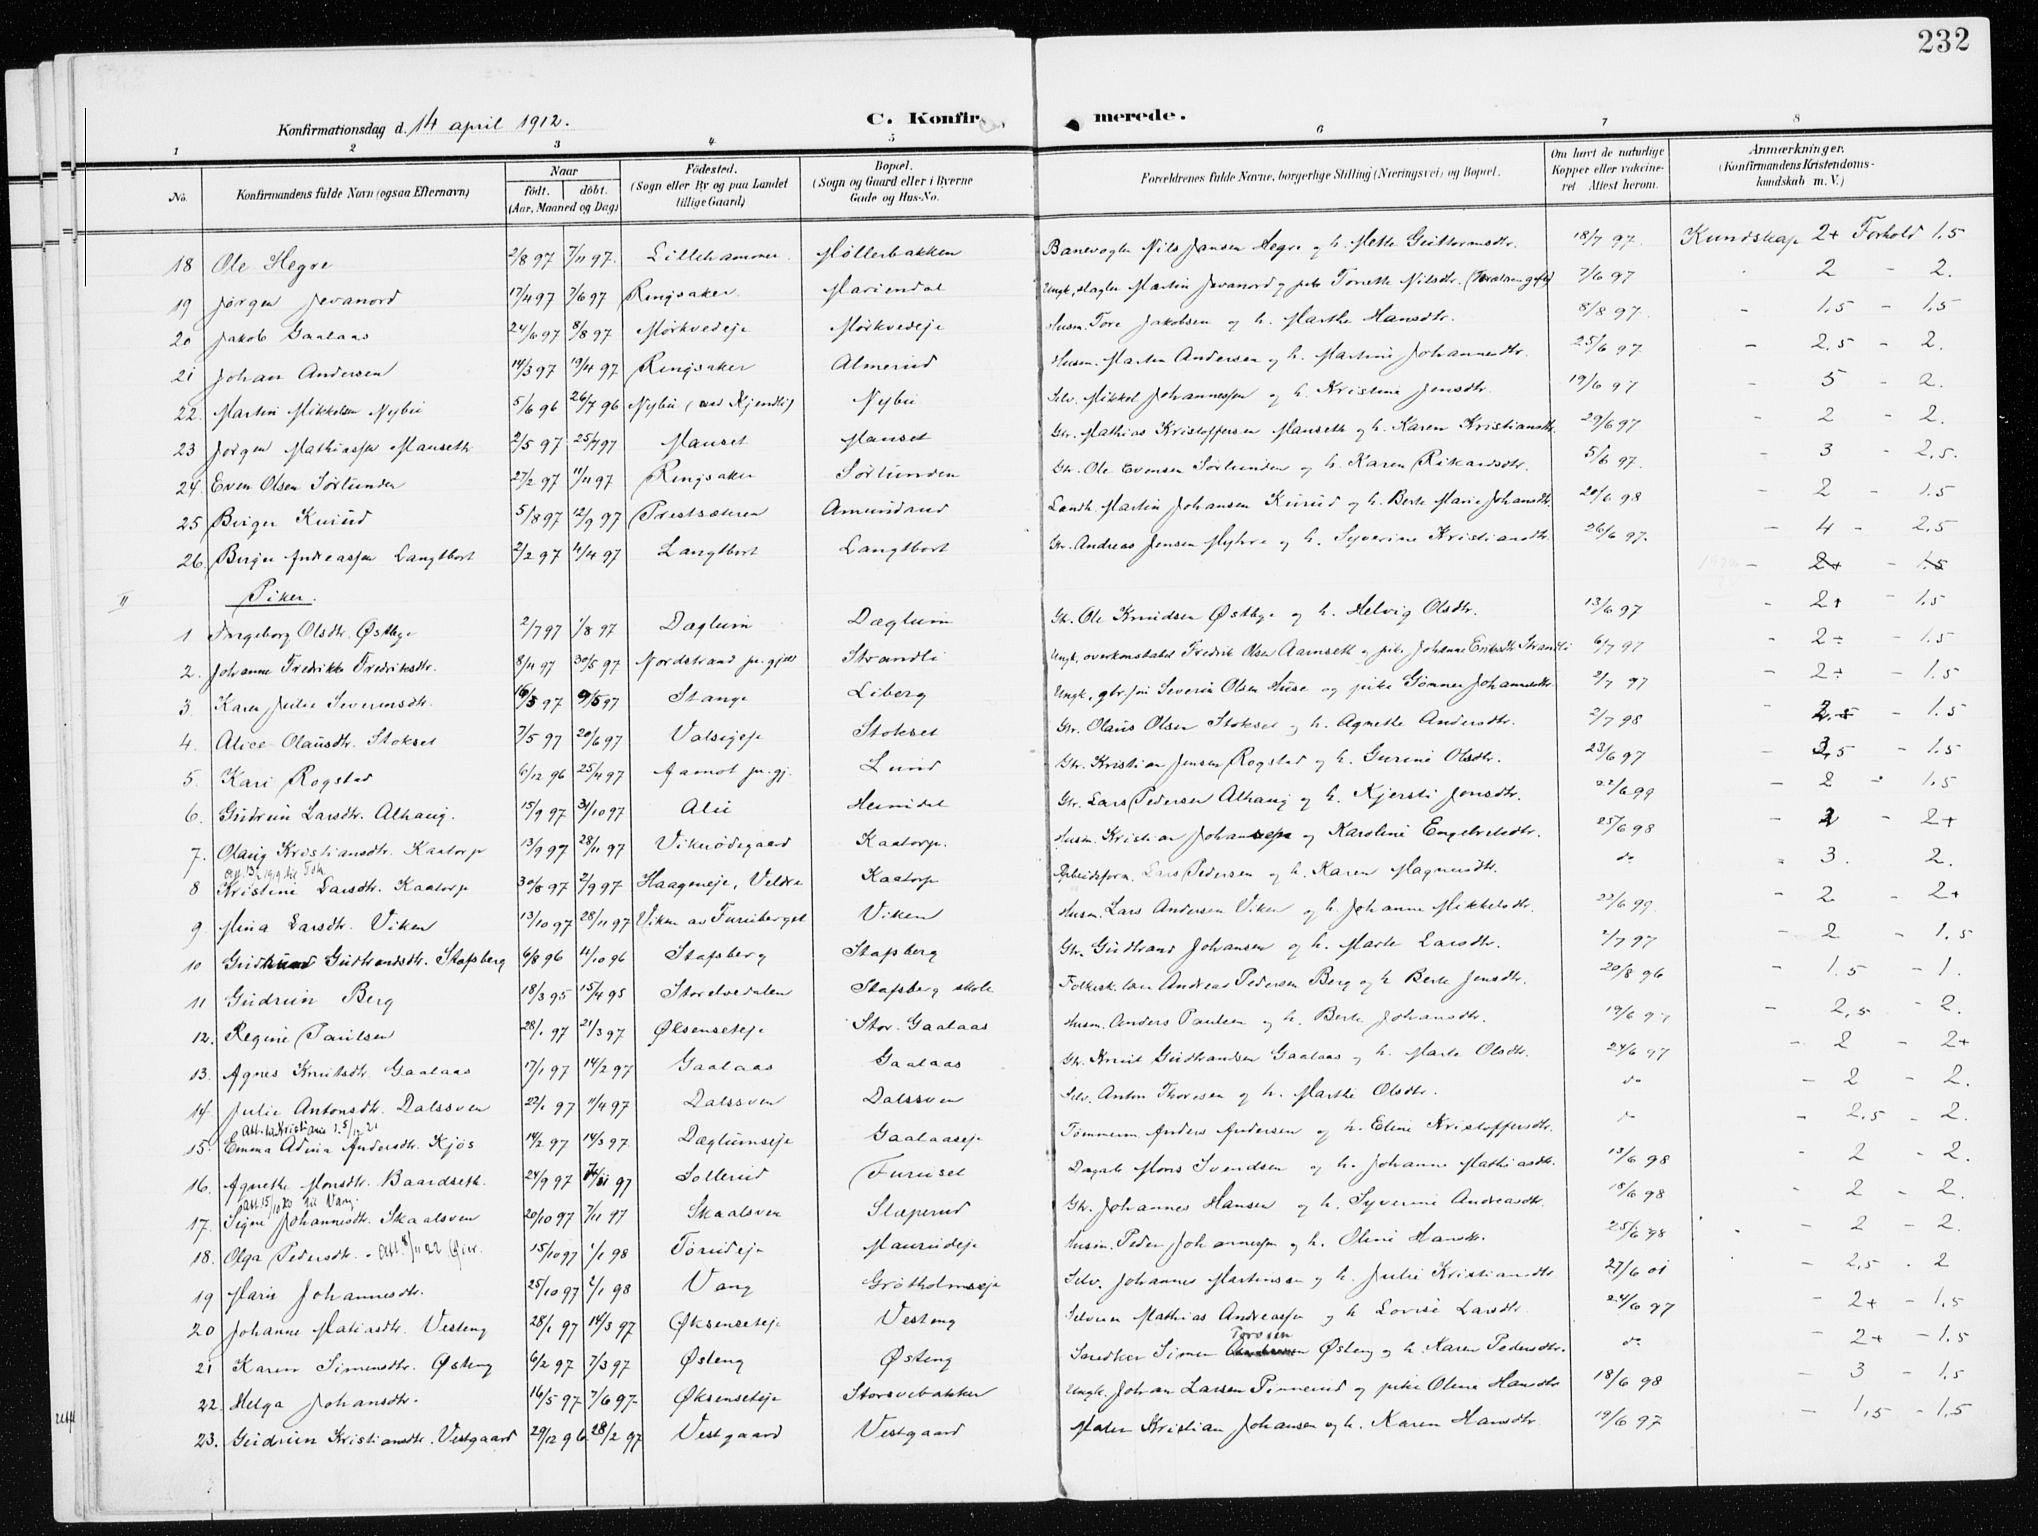 232
Konfirmationsdag d. 14 april 1912.
C. Konfir merede.
1 2 3 4 5 6 7 8
No. Konfirmandens fulde Navn (ogsaa Efternavn) Naar født. døbt. (Aar, Maaned og Dag) Fødested. (Sogn eller By og paa Landet tillige Gaard) Bopæl. (Sogn og Gaard eller i Byerne Gade og Hus-No. Forældrenes fulde Navne, borgerlige Stilling (Næringsvei) og Bopæl. Om havt de naturlige Kopper eller vakcineret Attest herom. Anmærkninger. (Konfirmandens Kristendomskundskab m. V.)
18 Ole Hegre 2/8 97 7/11 97. Lillehammer. Møllerbakken Banevogter Nils Jansen Hegre og h. Mette Guttormsdtr. 18/7 97. Kundskap 2+ Forhold 1.5
19 Jørgen Jevanord 17/4 97 7/6 97 Ringsaker. Mariendal Ungk, slagter Martin Jevanord og pike Torette Nilsdtr. 7/6 97 2 - 2.
20 Jakob Gaalaas 24/6 97 8/8 97 Mørkvedeje Mørkvedeje Husm. Tore Jakobsen og h. Marthe Hansdtr. 8/8 97. - 1.5 - 1.5
21 Johan Andersen 14/3 97 19/4 97 Ringsaker Almerud Husm. Martin Andersen og h. Martine Johannesdtr. 25/6 97. - 2.5 - 2.
22. Martin Mikkelsen Nybu 5/6 96 26/7 96 Nybu (ved Kjendli) Nybu Selv. Mikkel Johannessen og h. Kristine Jensdtr. 19/6 97 - 5 - 2.
23 Jørgen Mathiassen Manseth 2/5 97 25/7 97 Manset Manset Gbr. Mathias Kristoffersen Manseth og h. Karen Kristiansdtr. 29/6 97 - 2 - 2.
24. Even Olsen Sørlunden 27/2 97 11/11 97 Ringsaker Sørlunden Gbr. Ole Evensen Sørlunden og h. Karen Rikardsdtr. 5/6 97. - 3 - 2.5.
25 Birger Kurud 5/8 97 12/9 97 Prestsæteren Amundrud Landh. Martin Johansen Kurud og h. Berte Marie Johansdtr. 20/6 98 - 2 - 1.5
26. Birger Andreassen Langtbort 2/2 97 11/4 97 Langtbort Langtbort Gbr. Andreas Jensen Myhre og h. Syverine Kristiansdtr. 26/6 97. - 4 - 2.5
II Piker. - 2+ - 1.5
1 Ingeborg Olsdtr. Østbye 2/7 97 1/8 97 Dæglum Dæglum Gbr. Ole Knudsen Østbye og h. Helvig Olsdtr. 13/6 97 - 2+ - 1.5
2. Johanne Fredrikke Fredriksdtr. 8/4 97 30/5 97 Nordstrand pr.gjæld Strandli Ungk, overkonstabel Fredrik Olsen Aamseth og pike Johanne Eriksdtr Strandli 6/7 97 - 2÷ - 1.5
3. Karen Julie Severinsdtr. 16/3 97 9/5 97 Stange Liberg Ungk, Severin Olsen Huse og pike Gønner Johannesdtr. 2/7 97 - 2÷ - 1.5
4. Alice Olausdtr. Stokset 7/5 97 20/6 97 Valsigeje Stokset Gbr. Olaus Olsen Stokset og h. Agnethe Andersdtr. 2/7 98 - 2.5 - 1.5
5. Kari Rogstad 6/12 96 25/4 97 Aamot pr.gj. Lund Gbr. Kristian Jensen Rogstad og h. Gurine Olsdtr. 23/6 97 - 3.5 - 1.5
6. Gudrun Larsdtr. Alhaug. 15/9 97 31/10 97 Alu Heimdal Gbr. Lars Pedersen Alhaug og h. Kjersti Jonsdtr. 22/6 99 - 2 - 1.5
7. Olaug Kristiansdtr. Kaatorp 13/9 97 28/11 97 Vikerødegaard Kaatorp. Husm. Kristian Johansen og Karoline Engebretsdtr. 25/6 98 - 2 - 2+
8 Kristine Larsdtr. Kaatorp 30/8 97 2/9 97 Haageneje, Veldre Kaatorp Arbeidsform. Lars Pedersen og h. Karen Magnusdtr. do - 3. 2.
9 Mina Larsdtr. Viken 13/10 97 28/11 97 Viken av Furuberget Viken Husm. Lars Andersen Viken og h. Johanne Mikkelsdtr. 22/6 99. - 2 - 2+
10 Gudbrandsdtr. Stafsberg 6/8 96 11/10 96 Stafsberg Stafsberg Gbr. Gudbrand Johansen og h. Marte Larsdtr. 2/7 97 - 2 - 1.5
11 Gudrun Berg 18/3 95 15/4 95 Storelvedalen Stafsberg skole Folkesk.lær Andreas Pedersen Berg og h Berte Jensdtr. 20/8 96 - 1.5 - 1.
12. Regine Paulsen 28/1 97 21/3 97 Øksenseteje Stor. Gaalaas Husm. Anders Paulsen og h. Berte Johansdtr. 19/6 97 - 2.5 - 2.
13. Agnes Knutsdtr. Gaalaas 17/1 97 14/2 97 Gaalaas Gaalaas Gbr. Knut Gudbrandsen Gaalaas og h. Marte Olsdtr. 24/6 97 - 2 - 2+
14. Julie Antonsdtr. Dalssven 22/1 97 11/4 97 Dalssven Dalssven Selv. Anton Thoresen og h. Marthe Olsdtr. do - 2 - 2.
Att. til Kristiania 15/12 21
15. Emma Adina Andersdtr. Kjøs 14/2 97 14/3 97 Dæglumseje Gaalaaseje Tømmerm. Anders Andersen og h. Eline Kristoffersdtr. do - 2.5 - 2.
16. Agnethe Monsdtr. Baardseth. 24/9 97 Sollerud Furuset Dagarb. Mons Svendsen og h. Johanne Mathiasdtr. 13/6 98 - 2 - 2.
Att. 15/10 20 til Vang.
17. Signe Johannesdtr. Skaalsven 20/10 97 7/11 97 Skaalsven Slæperud Gbr. Johannes Hansen og h. Syverine Andreasdtr. 18/6 98 - 2 - 2.
18. Olga Pedersdtr. Att. 8/11 22 Øier. 15/10 97 1/1 98 Tørudeje Maurudeje Husm. Peder Johannessen og h. Oline Hansdtr. 25/6 98 - 2 - 2.
19 Marie Johannesdtr. 25/10 97 2/1 98 Vang Grøtholmseje Selv. Johannes Martinsen og h. Julie Kristiansdtr 27/6 01 - 2.5 - 2
20 Johanne Matiasdtr. Vesteng 28/1 97 14/3 97 Øksenseteje Vesteng Selveier Mathias Andreassen og h Lovise Larsdtr. 24/6 97 - 2+ - 1.5
21 Karen Simensdtr. Østeng 6/2 97 7/3 97 Østeng Østeng Snedker Simen Toresen Østeng og h. Karen Pedersdtr. do - 2+ - 1.5
22. Helga Johansdtr. 16/5 97 7/6 97. Øksenseteje Storsvebakken Ungk. Johan Larsen Pinnerud og pike Oline Hansdtr 18/6 98 - 3 - 1.5
23. Gudrun Kristiansdtr. Vestgaard 29/12 96 28/2 97 Vestgaard Vestgaard Maler Kristian Johansen og h. Karen Hansdtr. 19/6 97 - 1.5 - 1.5